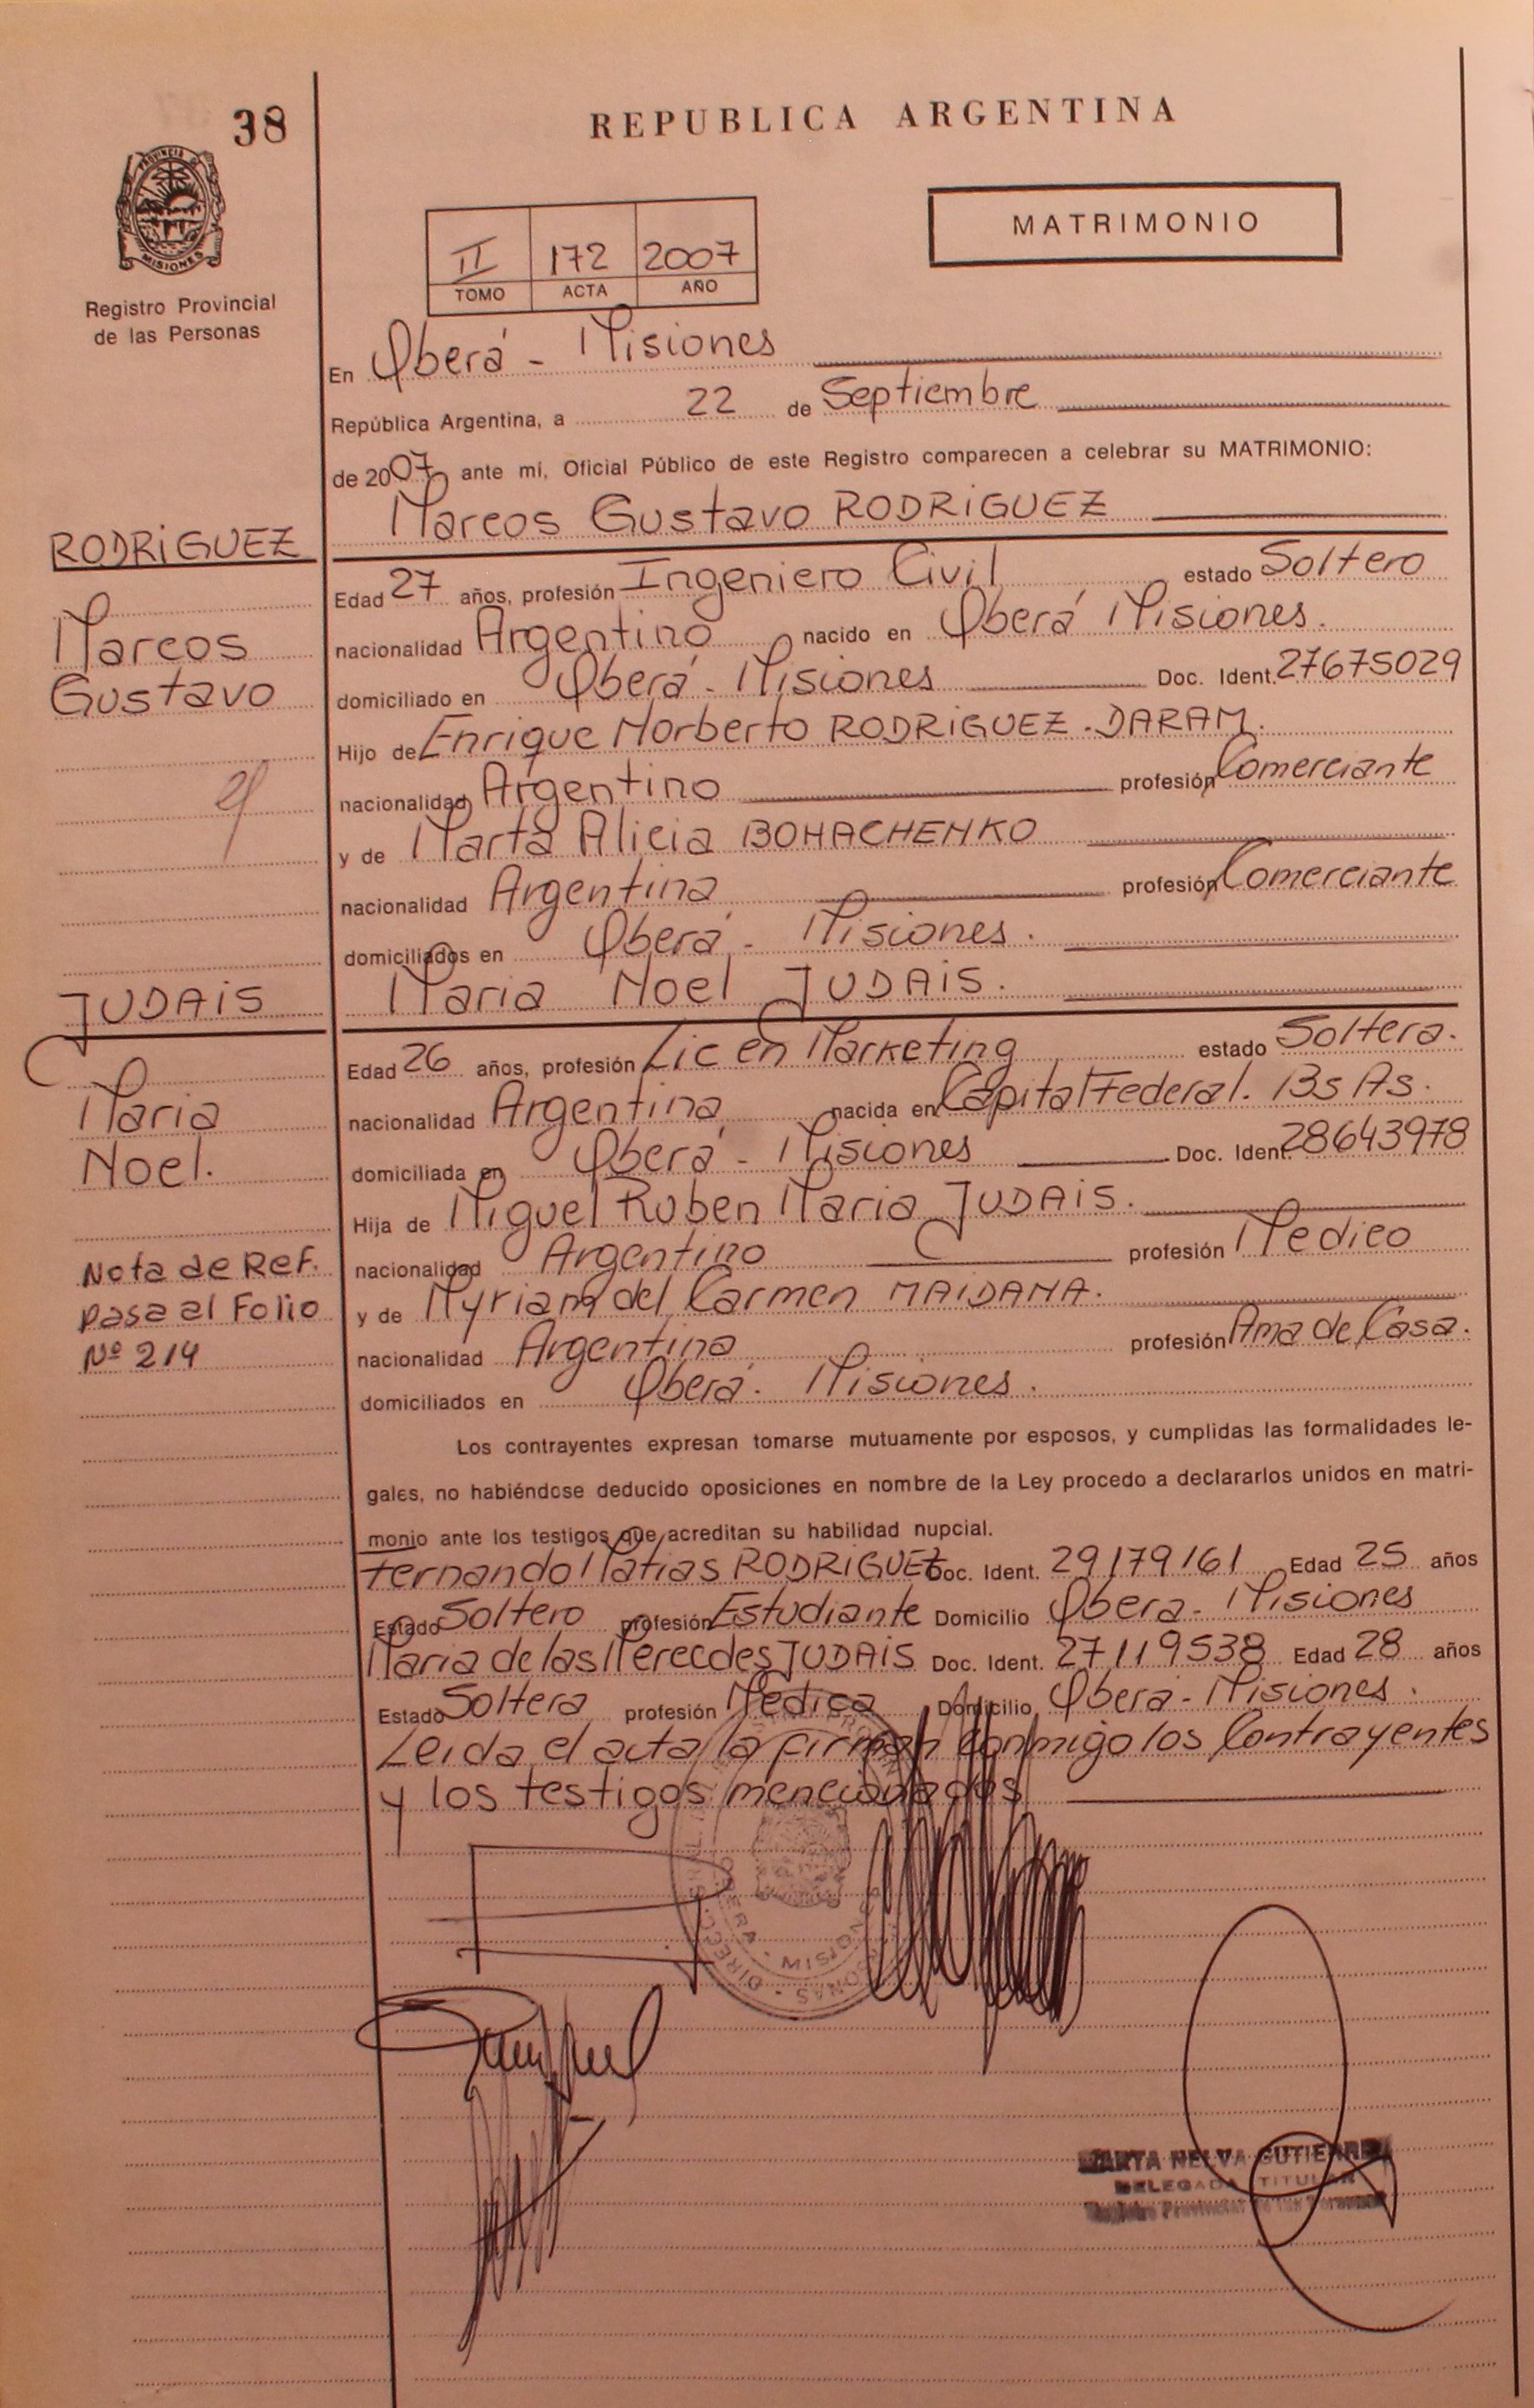 38
REPUBLICA ARGENTINA
PROVINCIA
MISIONES
Registro Provincial
de las Personas
MATRIMONIO
II 172 2007
TOMO ACTA AÑO
En Oberá - Misiones
República Argentina, a 22 de Septiembre
de 2007 ante mí, Oficial Público de este Registro comparecen a celebrar su MATRIMONIO:
Marcos Gustavo RODRIGUEZ
RODRIGUEZ
Marcos
Gustavo
Edad 27 años, profesión Ingeniero Civil estado Soltero
nacionalidad Argentino nacido en Oberá Misiones.
domiciliado en Oberá - Misiones Doc. Ident. 27675029
Hijo de Enrique Norberto RODRIGUEZ - DARAM.
nacionalidad Argentino profesión Comerciante
y de Marta Alicia BOHACHENKO
nacionalidad Argentina profesión Comerciante
domiciliados en Oberá - Misiones.
Maria Noel JUDAIS.
JUDAIS
Maria
Noel.
Edad 26 años, profesión Lic en Marketing estado Soltera.
nacionalidad Argentina nacida en Capital Federal. Bs As.
domiciliada en Oberá - Misiones Doc. Ident. 28643978
Hija de Miguel Ruben Maria JUDAIS.
nacionalidad Argentino profesión Medico
y de Myriam del Carmen MAIDANA.
nacionalidad Argentina profesión Ama de Casa.
domiciliados en Oberá. Misiones.
Nota de Ref.
pasa al Folio
Nº 214
Los contrayentes expresan tomarse mutuamente por esposos, y cumplidas las formalidades le-
gales, no habiéndose deducido oposiciones en nombre de la Ley procedo a declararlos unidos en matri-
monio ante los testigos que acreditan su habilidad nupcial.
Fernando Matias RODRIGUEZ Doc. Ident. 29179161 Edad 25 años
Estado Soltero profesión Estudiante Domicilio Oberá - Misiones
Maria de las Merecdes JUDAIS Doc. Ident. 27119538 Edad 28 años
Estado Soltera profesión Medica Domicilio Oberá - Misiones.
Leida el acta la firman conmigo los Contrayentes
y los testigos mencionados
MARTA NELVA GUTIERREZ
DELEGADA TITULAR
Registro Provincial de las Personas